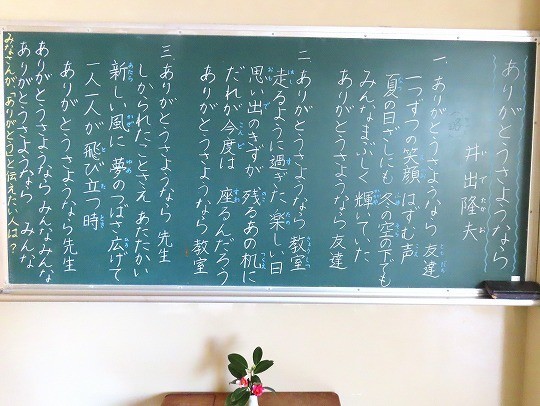 ありがとうさようなら
井出隆夫
一 ありがとうさようなら 友達
一つずつの笑顔 はずむ声
夏の日ざしにも 冬の空の下でも
みんなまぶしく輝いていた
ありがとうさようなら 友達
二 ありがとうさようなら 教室
走るように過ぎた 楽しい日
思い出のきずが 残るあの机に
だれが今度は 座るんだろう
ありがとうさようなら 教室
三 ありがとうさようなら 先生
しかられたことさえ あたたかい
新しい風に 夢のつばさ広げて
一人一人が 飛び立つ時
ありがとうさようなら 先生
ありがとうさようなら みんなみんな
ありがとうさようなら みんな
みなさんが、ありがとうと伝えたい人は